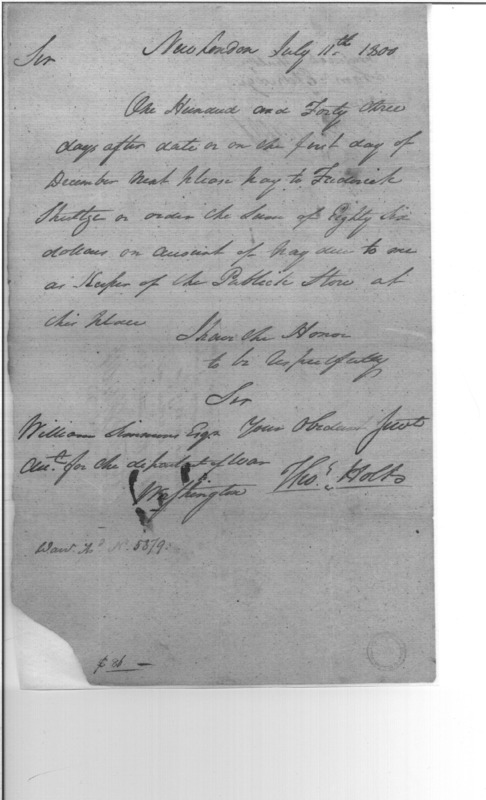 New London July 11th 1800
Sir
One Hundred and Forty three
days after date or on the first day of
December next please pay to Frederick
Shultze or order the Sum of Eighty Six
dollars on account of pay due to me
as Keeper of the Publick Store at
this place
I have the Honor
to be respectfully
Sir
William Simmons Esqr Your Obedient Servt
Acct. for the departmt of War
Washington Thos. Holt
Warr. No. 5379
$86 —